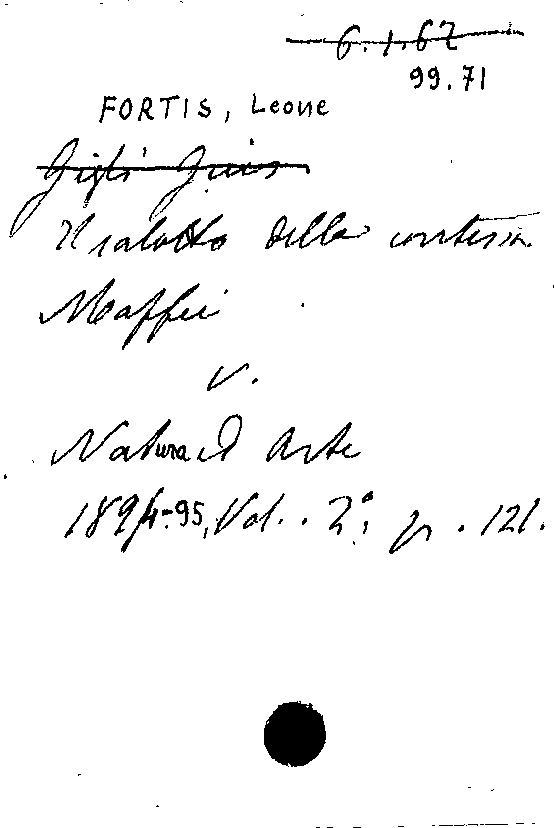 6.1.67
99.71
FORTIS, Leone
Gigli
Il salotto della contessa
Maffei
v.
Natura ed Arte
1894-95, Vol. 2°, p. 121.